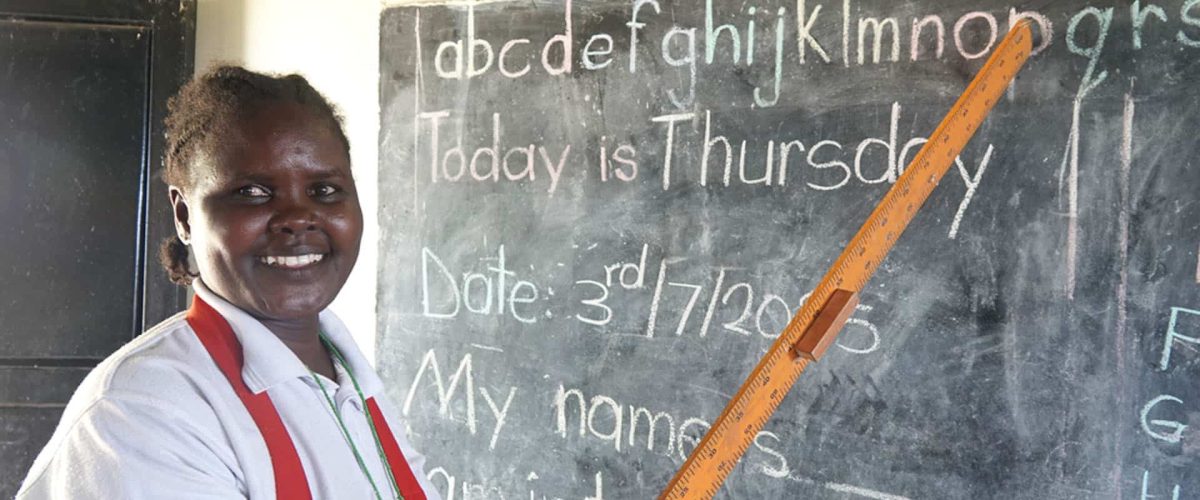 abcdefghijklmnopqrs
Today is Thursday
Date: 3rd/7/2025
My name is
F
G
H